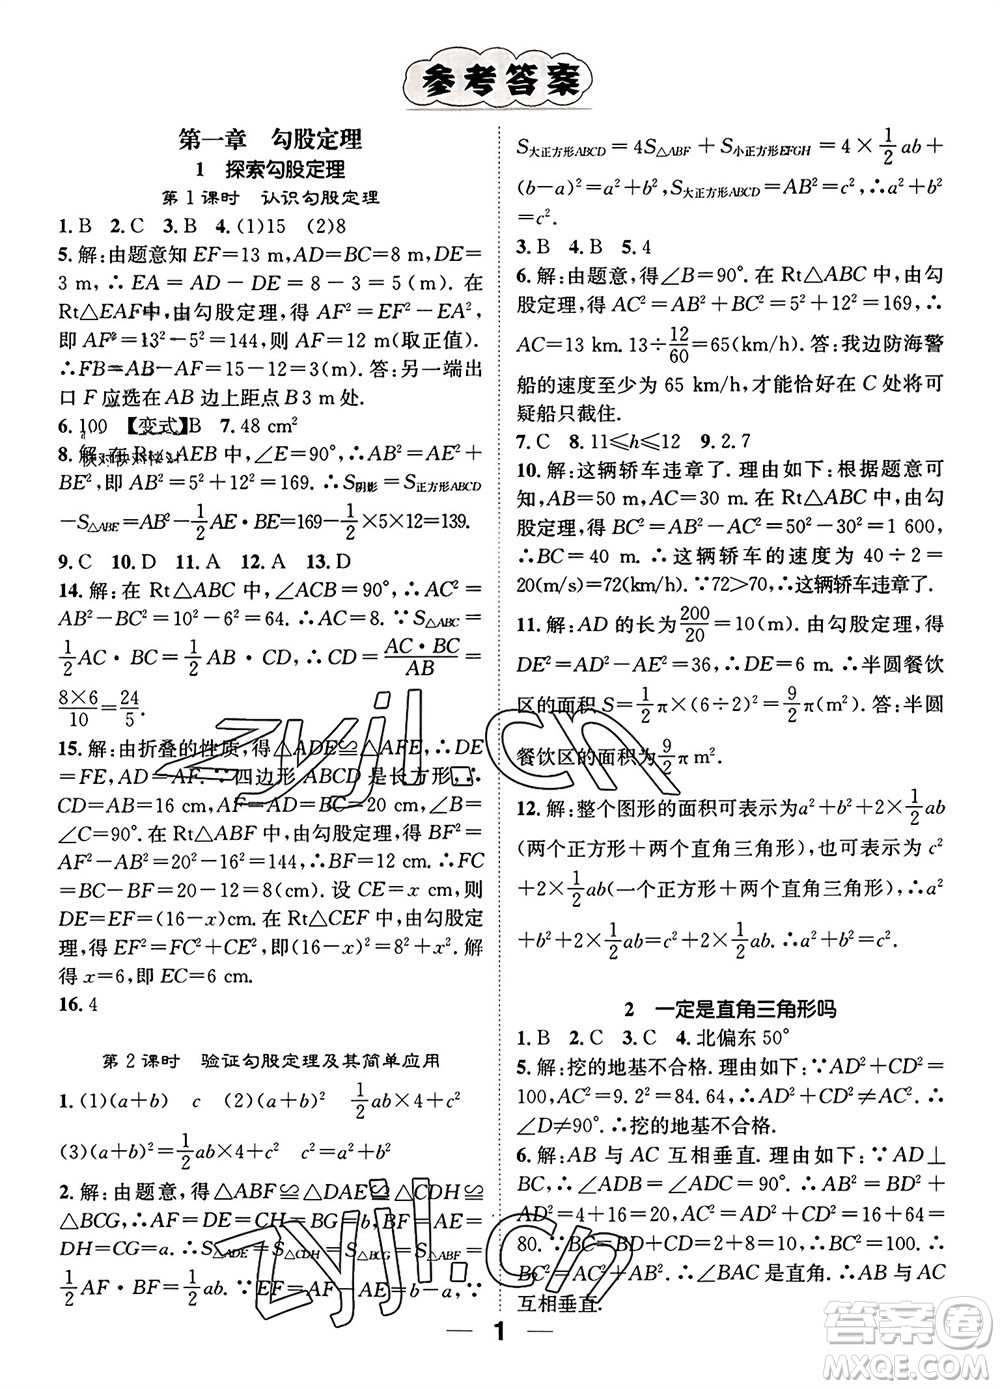 参考答案
第一章 勾股定理
1 探索勾股定理
第1课时 认识勾股定理
1. B 2. C 3. B 4. (1)15 (2)8
5. 解:由题意知 EF=13 m,AD=BC=8 m,DE=
3 m,∴EA=AD-DE=8-3=5(m). 在
Rt△EAF中,由勾股定理,得 AF²=EF²-EA²,
即 AF²=13²-5²=144,则 AF=12 m(取正值).
∴FB=AB-AF=15-12=3(m). 答:另一端出
口 F 应选在 AB 边上距点 B 3 m 处.
6. 100 【变式】B 7. 48 cm²
8. 解:在 Rt△AEB 中,∠E=90°,∴AB²=AE²+
BE²,即 AB²=5²+12²=169. ∴S阴影=S正方形ABCD
-S△ABE=AB²-1/2 AE·BE=169-1/2×5×12=139.
9. C 10. D 11. A 12. A 13. D
14. 解:在 Rt△ABC 中,∠ACB=90°,∴AC²=
AB²-BC²=10²-6²=64. ∴AC=8. ∵S△ABC=
1/2 AC·BC=1/2 AB·CD,∴CD=AC·BC/AB=
8×6/10=24/5.
15. 解:由折叠的性质,得△ADE≌△AFE,∴DE
=FE,AD=AF. ∵四边形 ABCD 是长方形,∴
CD=AB=16 cm,AF=AD=BC=20 cm,∠B=
∠C=90°. 在 Rt△ABF 中,由勾股定理,得 BF²=
AF²-AB²=20²-16²=144,∴BF=12 cm. ∴FC
=BC-BF=20-12=8(cm). 设 CE=x cm,则
DE=EF=(16-x)cm. 在 Rt△CEF 中,由勾股定
理,得 EF²=FC²+CE²,即(16-x)²=8²+x². 解
得 x=6,即 EC=6 cm.
16. 4
第2课时 验证勾股定理及其简单应用
1. (1)(a+b) c (2)(a+b)² 1/2 ab×4 c²
(3)(a+b)²=1/2 ab×4+c² c²=a²+b²
2. 解:由题意,得△ABF≌△DAE≌△CDH≌
△BCG,∴AF=DE=CH=BG=b,BF=AE=
DH=CG=a. ∴S△ADE=S△CDH=S△BCG=S△ABF=
1/2 AF·BF=1/2 ab,EF=AF-AE=b-a. ∵
S大正方形ABCD=4S△ABF+S小正方形EFGH=4×1/2 ab+
(b-a)²=a²+b²,S大正方形ABCD=AB²=c²,∴a²+b²
=c².
3. B 4. B 5. 4
6. 解:由题意,得∠B=90°. 在 Rt△ABC 中,由勾
股定理,得 AC²=AB²+BC²=5²+12²=169,∴
AC=13 km. 13÷12/60=65(km/h). 答:我边防海警
船的速度至少为 65 km/h,才能恰好在 C 处将可
疑船只截住.
7. C 8. 11≤h≤12 9. 2.7
10. 解:这辆轿车违章了. 理由如下:根据题意可
知,AB=50 m,AC=30 m. 在 Rt△ABC 中,由勾
股定理,得 BC²=AB²-AC²=50²-30²=1 600,
∴BC=40 m. ∴这辆轿车的速度为 40÷2=
20(m/s)=72(km/h). ∵72>70,∴这辆轿车违章了.
11. 解:AD 的长为 200/20=10(m). 由勾股定理,得
DE²=AD²-AE²=36,∴DE=6 m. ∴半圆餐饮
区的面积 S=1/2 π×(6÷2)²=9/2 π(m²). 答:半圆
餐饮区的面积为 9/2 π m².
12. 解:整个图形的面积可表示为 a²+b²+2×1/2 ab
(两个正方形+两个直角三角形),也可表示为 c²
+2×1/2 ab(一个正方形+两个直角三角形),∴a²
+b²+2×1/2 ab=c²+2×1/2 ab. ∴a²+b²=c².
2 一定是直角三角形吗
1. B 2. C 3. C 4. 北偏东 50°
5. 解:挖的地基不合格. 理由如下:∵AD²+CD²=
100,AC²=9.2²=84.64,∴AD²+CD²≠AC². ∴
∠D≠90°. ∴挖的地基不合格.
6. 解:AB 与 AC 互相垂直. 理由如下:∵AD⊥
BC,∴∠ADB=∠ADC=90°. ∴AB²+AC²=
BD²+AD²+AD²+CD²=4+16+20+40=
80. ∵BC=BD+CD=2+8=10,∴AB²+AC²
≠BC². ∴∠BAC 是直角. ∴AB 与 AC
互相垂直.
1
zyjl.cn
zyjl.cn
答案圈
MXQE.COM